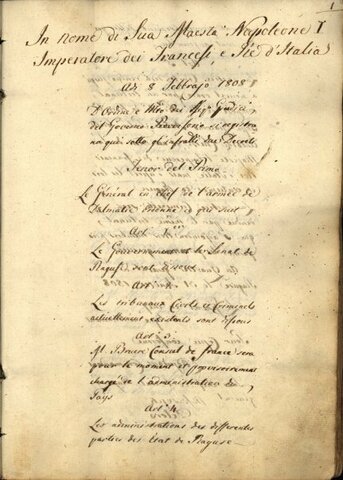 1
In nome di Sua Maestà Napoleone I
Imperatore dei Francesi, e Rè d'Italia
Adi 8 Febbrajo 1808
D'Ordine e dei Giudici
del Governo Provisorio si registra
no quì sotto gl'infratti due Decreti
Tenor del Primo
Le Général en Chef de l'Armée de
Dalmatie ordonne ce qui suit
Art. 1.
Le Gouvernement et le Senat de
Raguse sont dissous
Art. 2.
Les tribunaux Civils et Criminels
actuellement existents sont dissous
Art. 3
Mr. Bruere Consul de france sera
pour le moment et provisoirement
chargé de l'administration du
Pays
Art. 4.
Les administrations des differentes
parties des Etat de Raguse